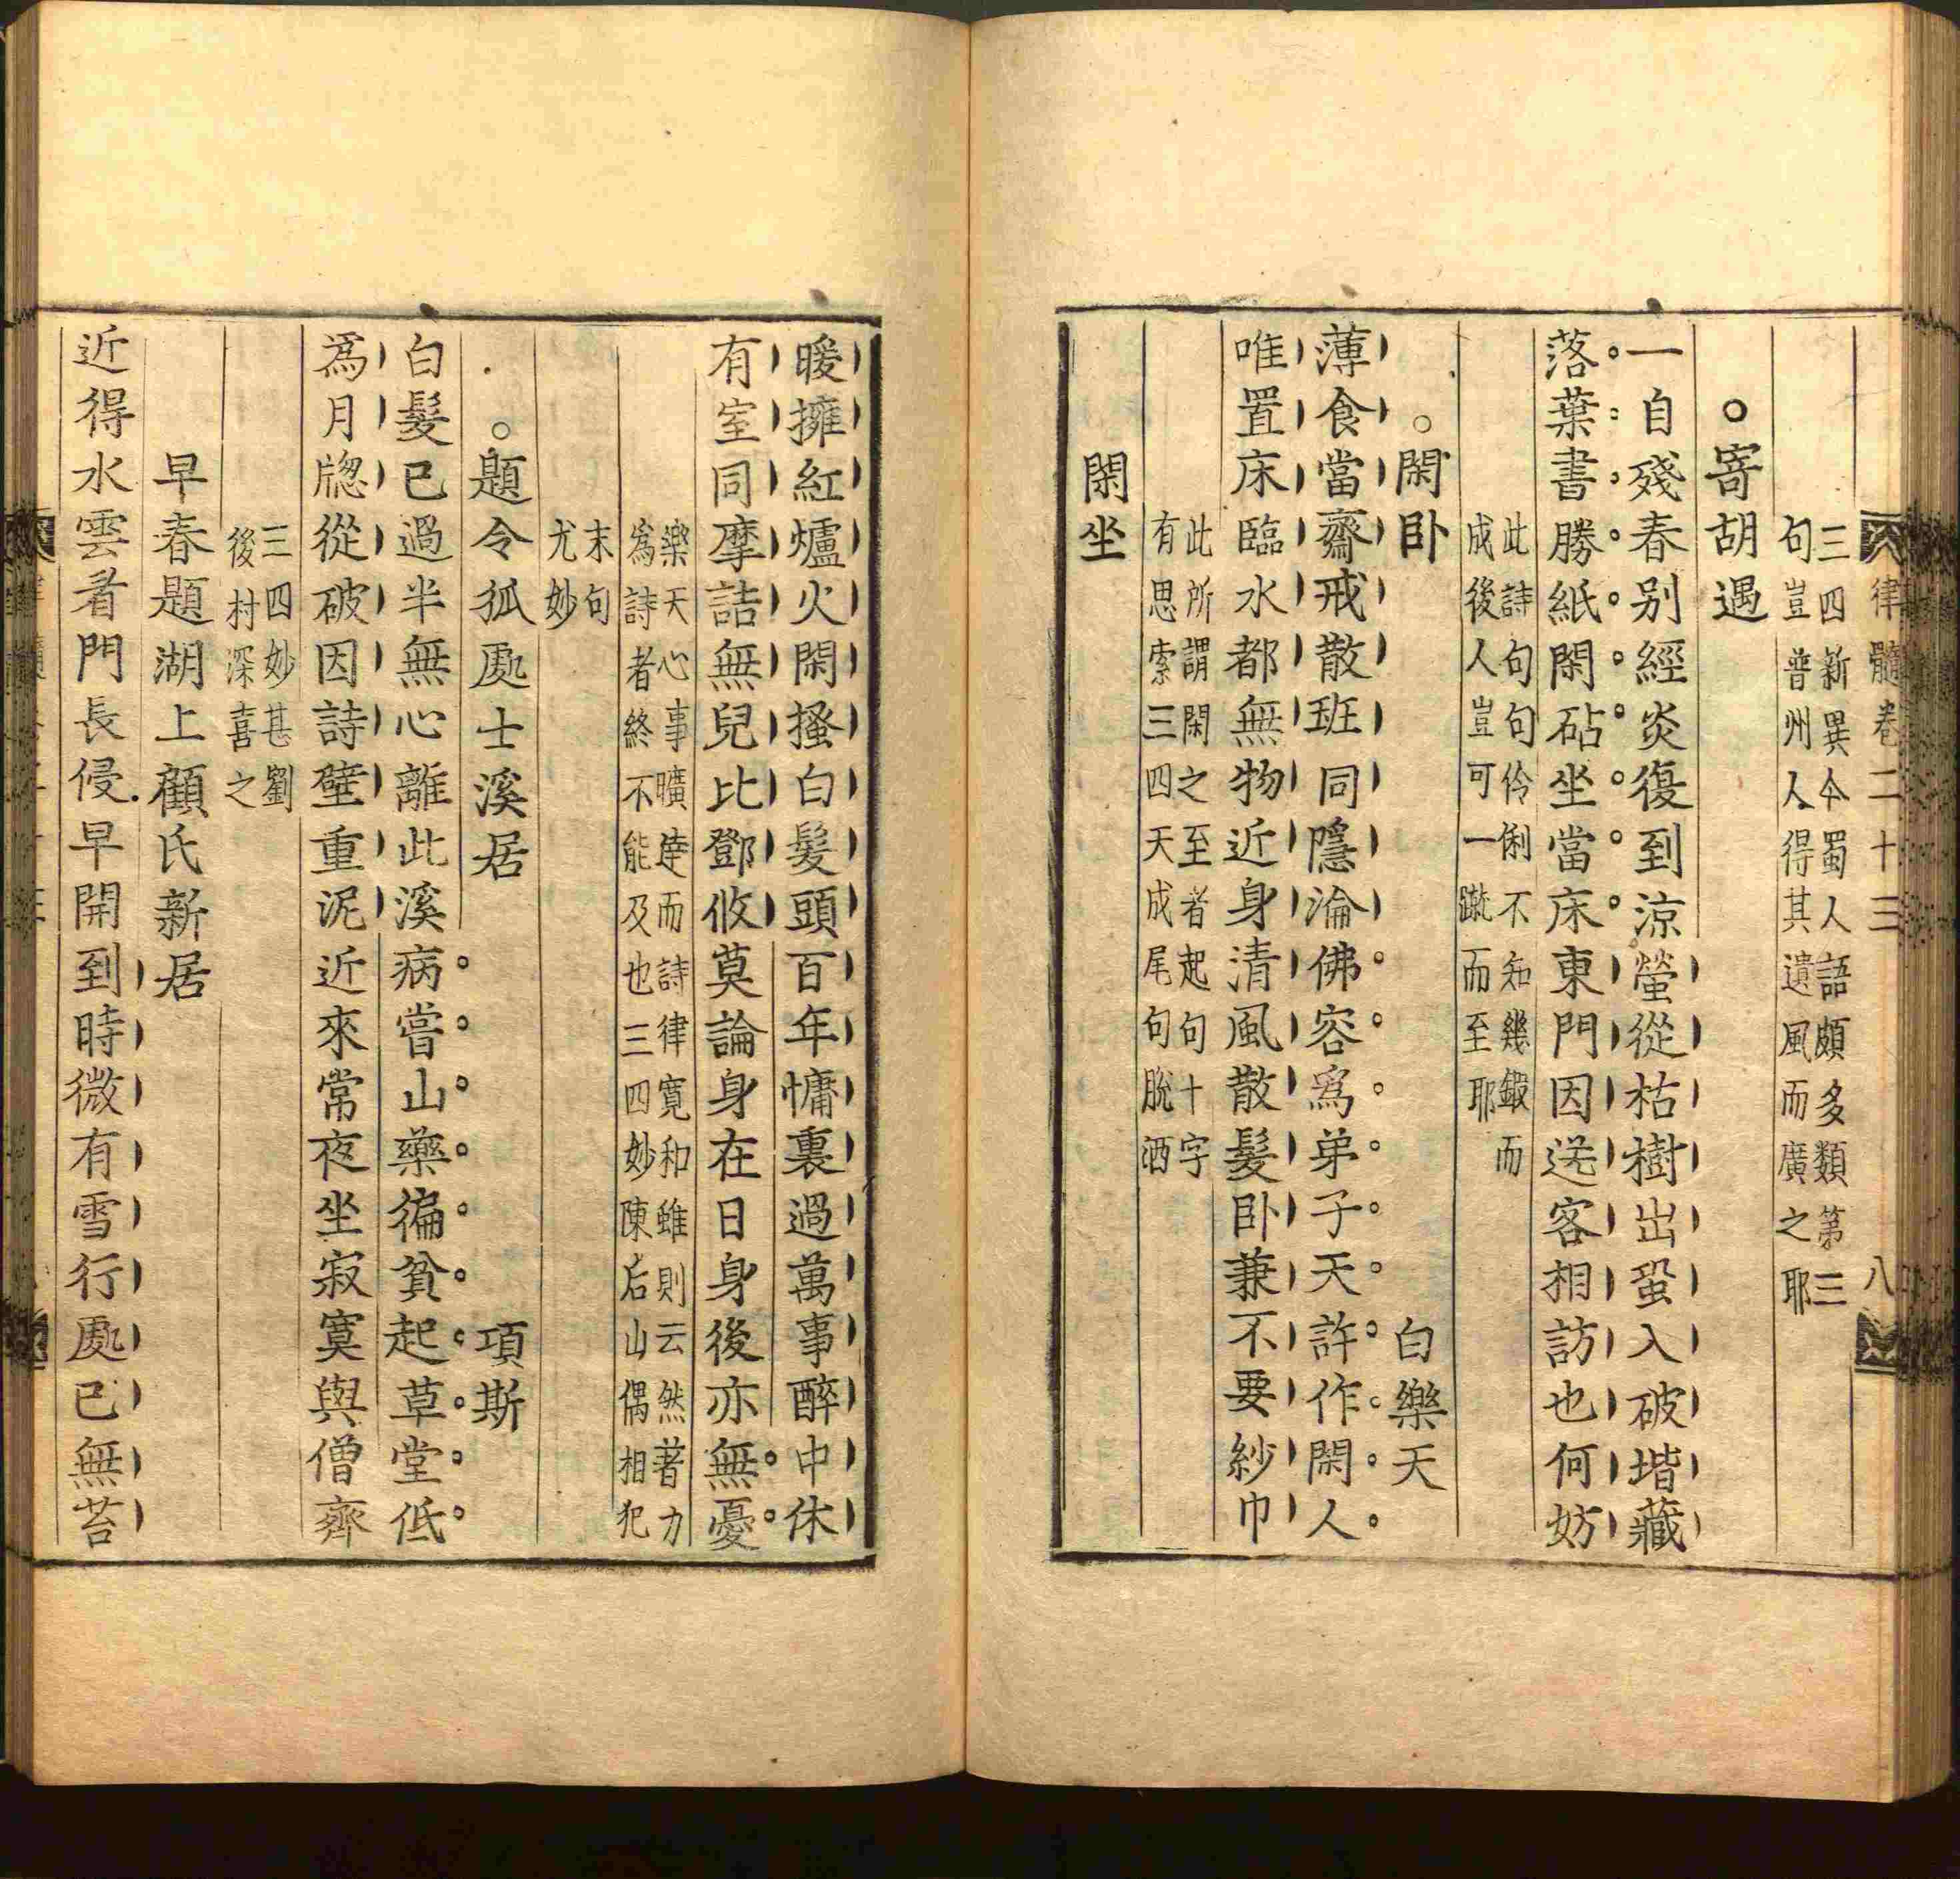 律髓卷二十三 八
三四新異今蜀人語頗多類第三
句豈普州人得其遺風而廣之耶
寄胡遇
一自殘春别經炎復到涼螢從枯樹出蛩入破堦藏
落葉書勝紙閑砧坐當床東門因送客相訪也何妨
此詩句句伶俐不知幾鍜而
成後人豈可一蹴而至耶
閑卧 白樂天
薄食當齋戒散班同隱淪佛容爲弟子天許作閑人
唯置床臨水都無物近身清風散髮卧兼不要紗巾
此所謂閑之至者起句十字
有思索三四天成尾句脫洒
閑坐
暖擁紅爐火閑搔白髮頭百年慵裏過萬事醉中休
有室同摩詰無兒比鄧攸莫論身在日身後亦無憂
樂天心事曠達而詩律寬和雖則云然著力
爲詩者終不能及也三四妙陳后山偶相犯
末句
尤妙
題令狐處士溪居 項斯
白髮已過半無心離此溪病嘗山藥徧貧起草堂低
爲月牎從破因詩壁重泥近來常夜坐寂寞與僧齊
三四妙甚劉
後村深喜之
早春題湖上顧氏新居
近得水雲看門長侵早開到時微有雪行處已無苔